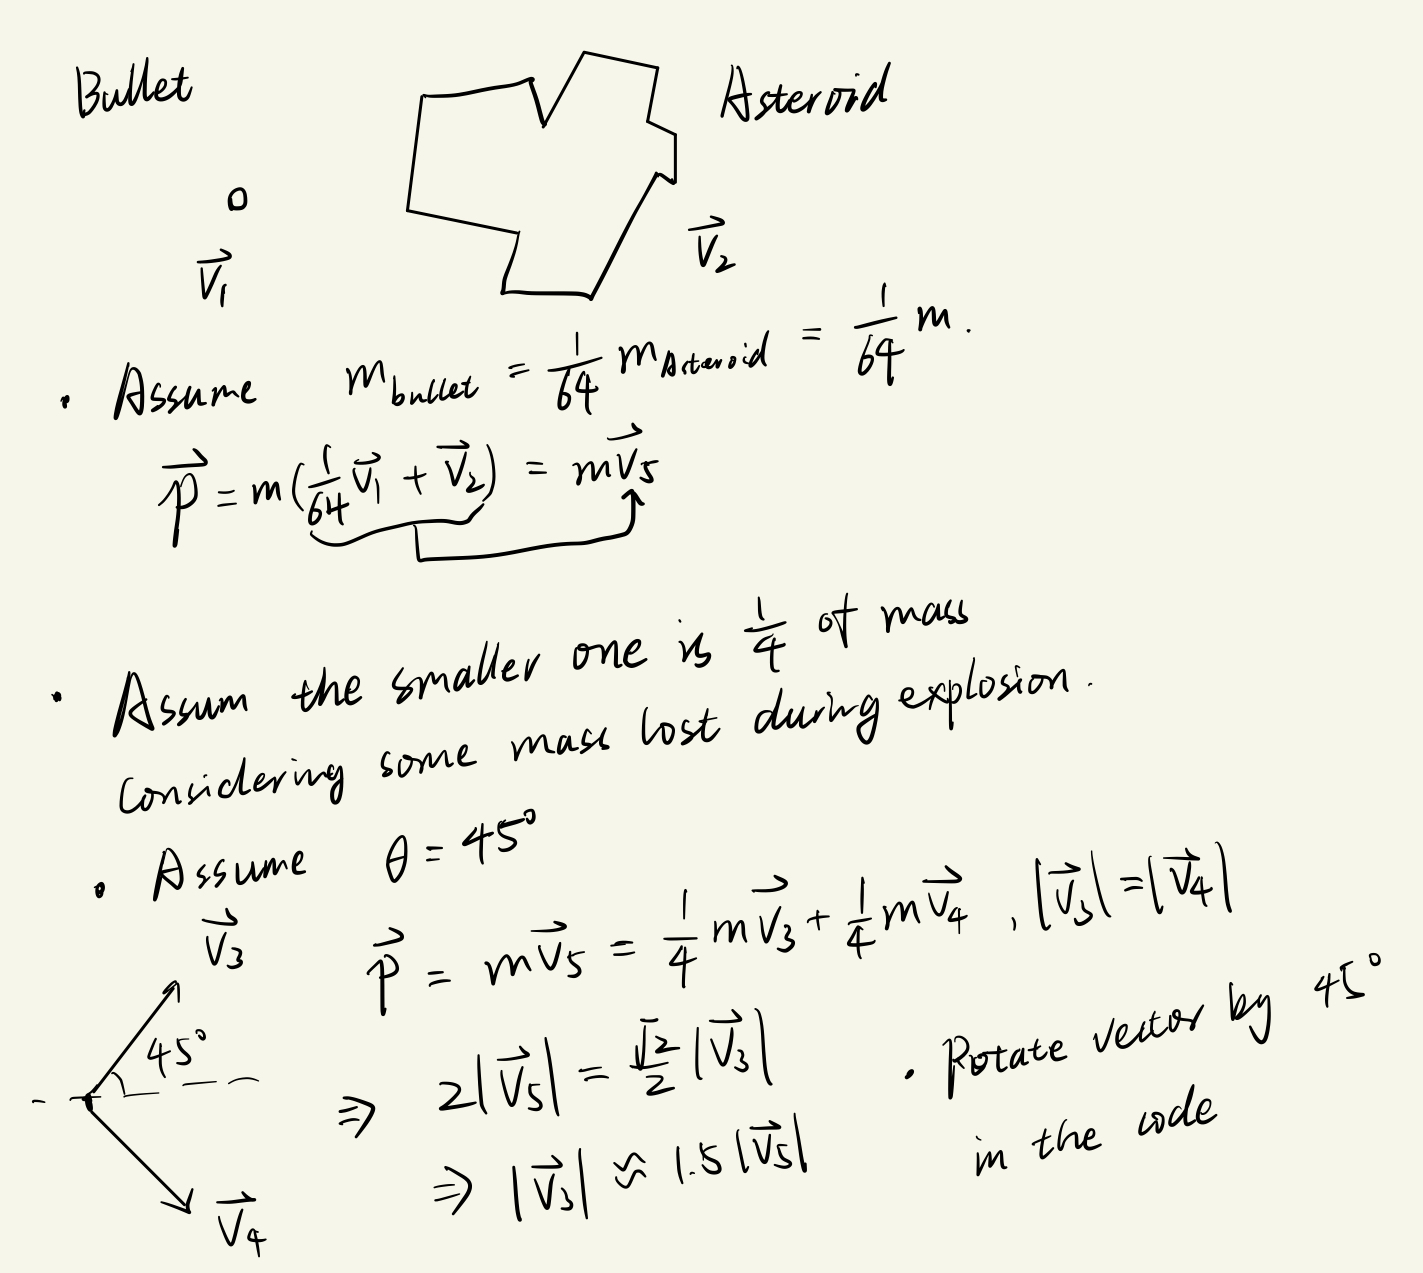 Bullet
Asteroid
V⃗₁
V⃗₂
· Assume m_bullet = 1/64 m_Asteroid = 1/64 m.
p⃗ = m(1/64 V⃗₁ + V⃗₂) = mV⃗₅
· Assum the smaller one is 1/4 of mass
Considering some mass lost during explosion.
· Assume θ = 45°
V⃗₃
p⃗ = mV⃗₅ = 1/4 mV⃗₃ + 1/4 mV⃗₄ , |V⃗₃| = |V⃗₄|
45°
⇒ 2|V⃗₅| = √2/2 |V⃗₃|
· Rotate vector by 45°
in the code
⇒ |V⃗₃| ≈ 1.5 |V⃗₅|
V⃗₄